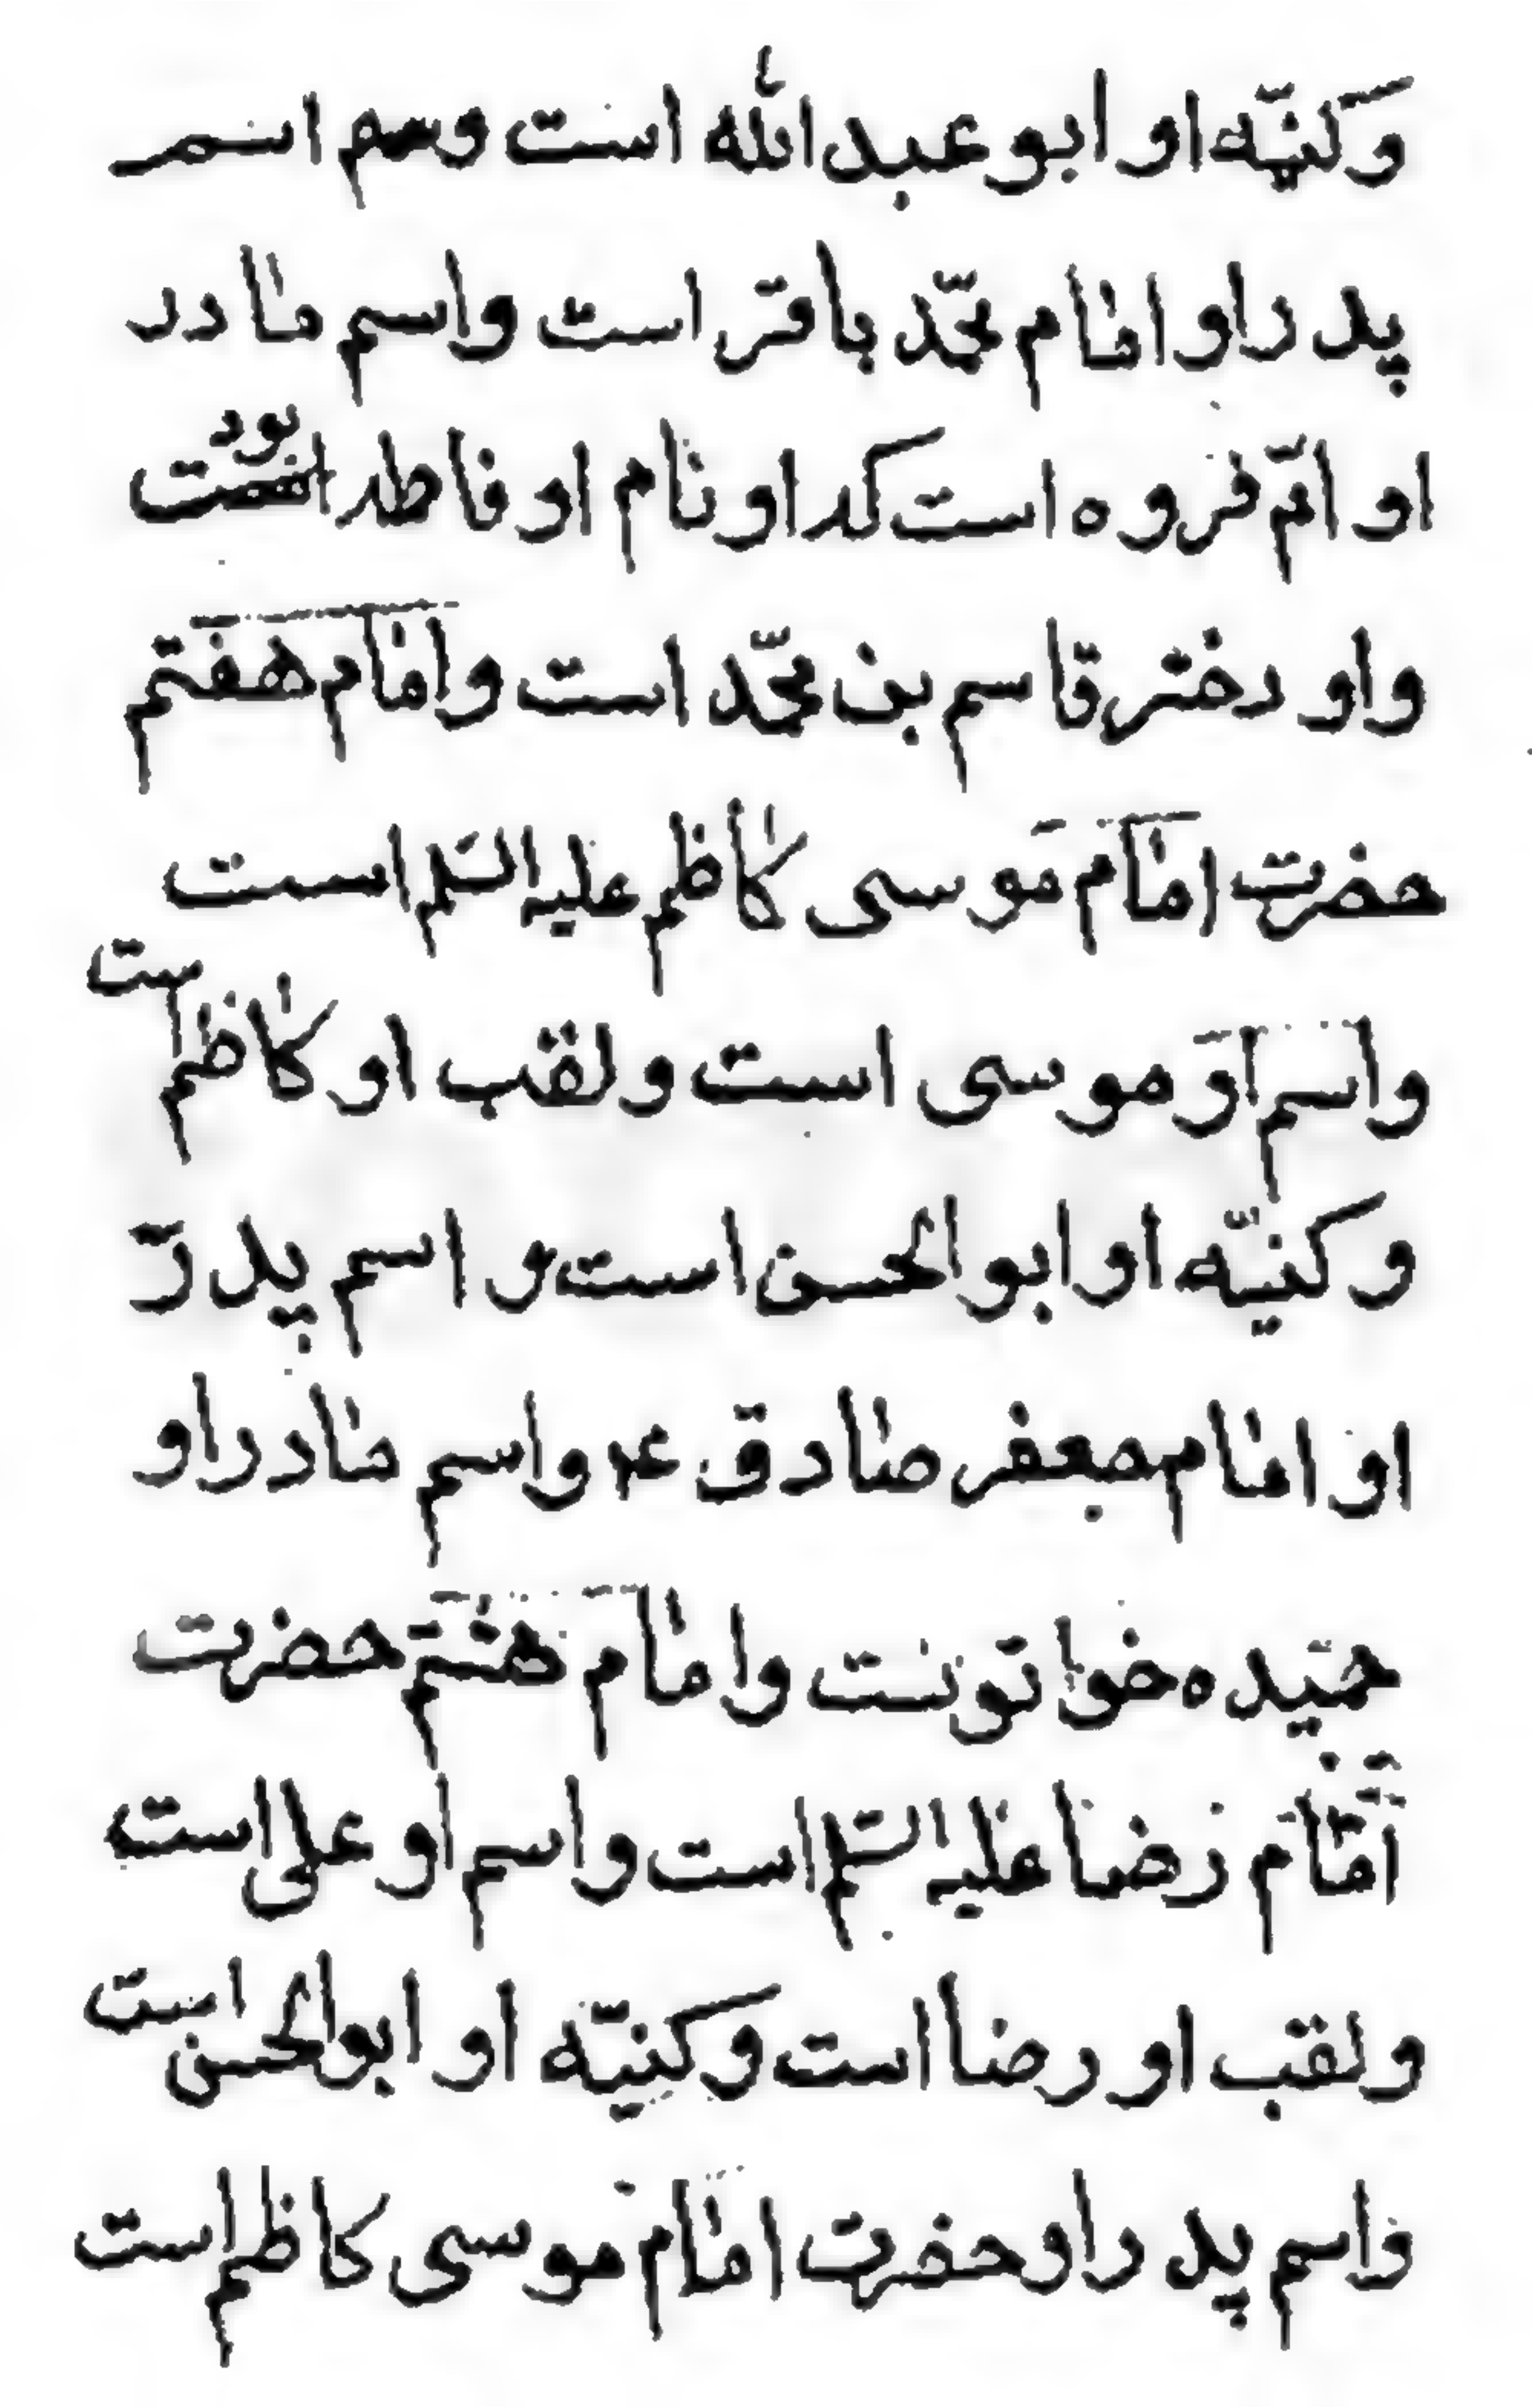 وکنیّه او ابو عبدالله است وسم اسم
پدر او امام محمّد باقر است واسم مادر
او امّ فروه است که او نام او فاطمه بود
واو دختر قاسم بن محمّد است وامام هفتم
حضرت امام موسی کاظم علیه السّلم است
واسم او موسی است ولقب او کاظم است
وکنیّه او ابوالحسن است و اسم پدر
او امام جعفر صادق ع واسم مادر او
حمیده خواتونست وامام هشتم حضرت
امام رضا علیه السّلم است واسم او علی است
ولقب او رضا است وکنیّه او ابوالحسن است
واسم پدر او حضرت امام موسی کاظم است